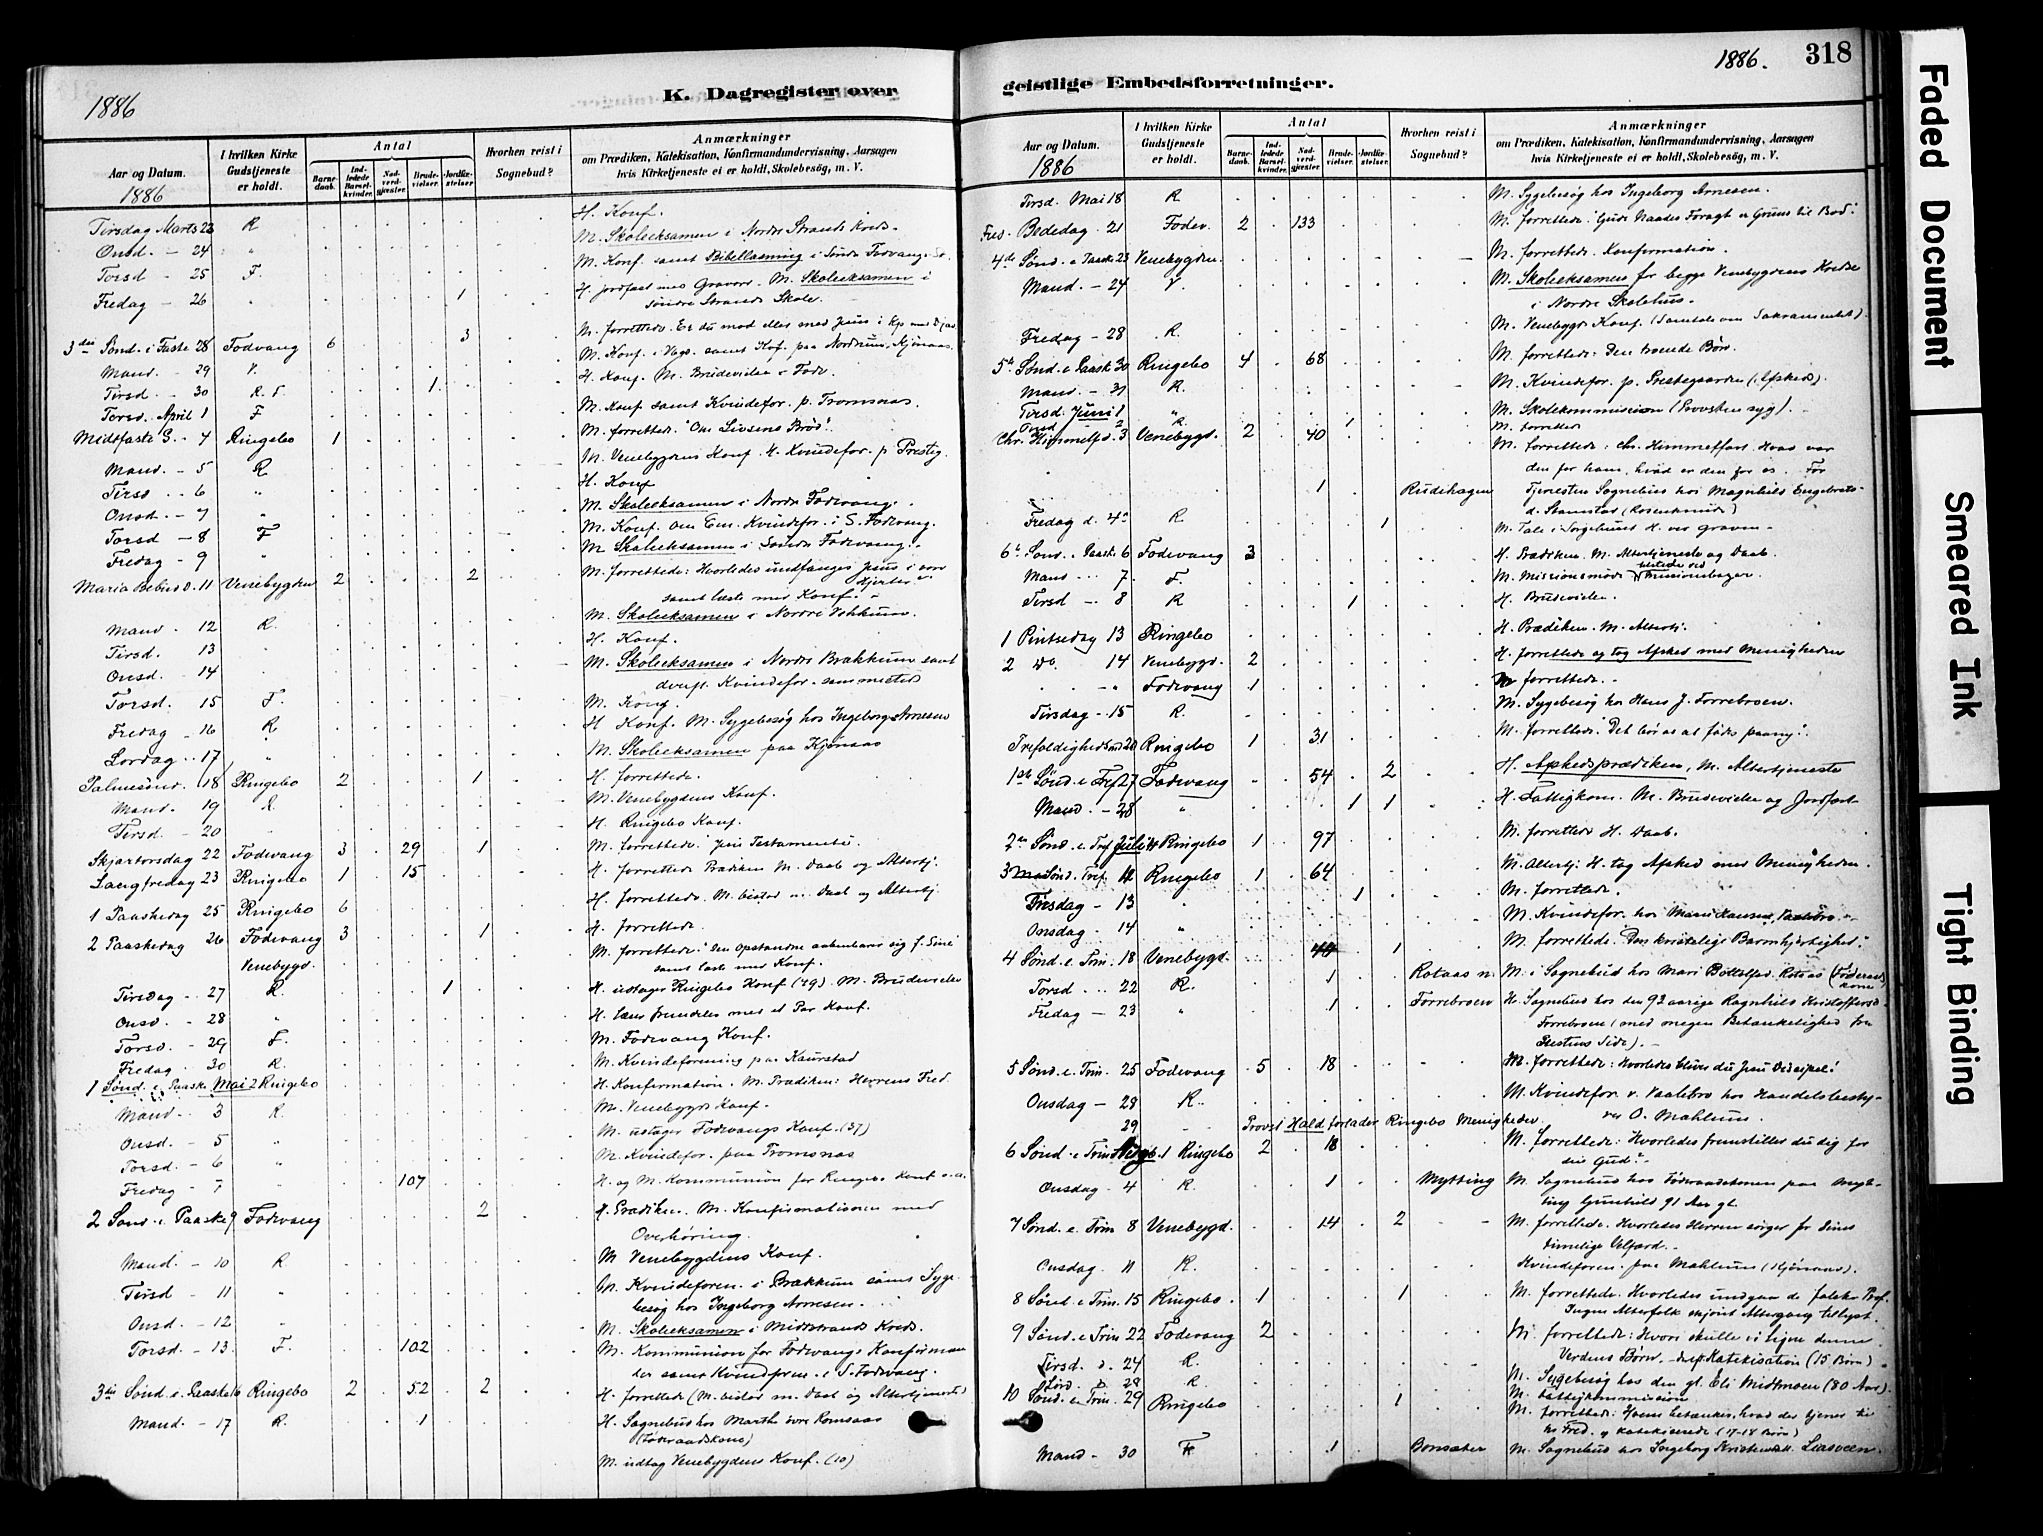 1886
K. Dagregister over
Aar og Datum.
1886
I hvilken Kirke Gudstjeneste er holdt.
Antal
Barnedaab.
Indledede Barselkvinder.
Nadverdgjester.
Brudevielser.
Jordfæstelser.
Hvorhen reist i Sognebud?
Anmærkninger
om Prædiken, Katekisation, Konfirmandundervisning, Aarsagen
hvis Kirketjeneste ei er holdt, Skolebesøg, m. V.
Tirsdag Marts 23 R H. Konf.
Onsd. - 24 " M. Skoleeksamen i Nordre Strands Kreds.
Torsd - 25 F. M. Konf. samt Bibellæsning i Søndre Fodvang
Fredag - 26 " 1 H. jordfæst med Gravøl. M. Skoleeksamen i
Søndre Strands Skole.
3die Sønd. i Faste 28 Fodvang 6 3 M. forrettede. Er du mod eller med Jesus
Mand. - 29 V. M. Konf. i Veg. samt Kof. paa Nordrum, Kjønaas.
Tirsd. - 30 R. F. 1 H. Konf. M. Brudevielse i Fodv.
Torsd. April 1 F M. Konf samt Kvindefor. p. Tromsnæs.
Midtfaste S. - 4 Ringebo 1 M. forrettede. "Om Livsens Brød".
Mand. - 5 R M. Venebygdens Konf. H. Kvindefor. p Prestg.
Tirsd - 6 " H. Konf
Onsd. - 7 " M. Skoleeksamen i Nordre Fodevang.
Torsd - 8 F M. Konf. om Em. Kvindefor. i S. Fodvang.
Fredag - 9 " M Skoleeksamen i Søndre Fodevang.
Maria Bebud D. 11 Venebygden 2 2 M. forrettede: Hvorledes undfanges Jesus i vore Hjerter
samt læste med Konf.
Mand - 12 R. M. Skoleeksamen i Nordre
Tirsd. 13 H. Konf.
Onsd. - 14 M. Skoleeksamen i Nordre Brækkum samt
Kvindefor. sammesteds
Torsd. 15 F. M. Konf.
Fredag - 16 R H Konf. M. Sygebesøg hos Ingeborg Arnesen
Lørdag - 17 " M. Skoleeksamen paa Kjønaas
Palmesønd. 18 Ringebo 2 1 H. forrettede.
Mand. 19 R M. Venebygdens Konf.
Tirsd. - 20 H. Ringebo Konf.
Skjærtorsdag 22 Fodevang 3 29 1 M. forrettede. Jesu Testamente.
Langfredag 23 Ringebo 1 15 H. forrettede Prædiken M. Daab og Altertj.
1 Paaskedag 25 Ringebo 6 H. forrettede. M. bistod m. Daab og Altertj
2 Paaskedag 26 Fodevang 3 1 H. forrettede.
Venebygd. M. forrettede: Den opstandne aabenbarer sig f. Sine
samt læste med Konf.
Tirsdag - 27 R. 1 H. udtager Ringebo Konf (49). M. Brudevielse
Onsd. - 28 " H. læser fremdeles med et Par Konf.
Torsd. - 29 F. M. Fodevang Konf.
Fredag - 30 R. M. Kvindeforening paa Kaurstad
1 Sønd. e. Paaske Mai 2 Ringebo H. Konfirmation. M. Prædiken: Herrens Fred.
Mand. 3 R. M. Venebygds Konf.
Onsd. - 5 " M. udtager Fodvangs Konf. (37)
Torsd. - 6 " M. Kvindefor. paa Tromsnæs
Fredag - 7 " 107 H. og M. Kommunion for Ringebo Konf o. a.
2 Sønd. e. Paaske 9 Fodvang 2 H Prædiken. M. Konfirmationen med
Overhøring.
Mand. - 10 R. M Venebygdens Konf.
Tirsd - 11 " M. Kvindeforen. i Brækkum samt Sygebesøg hos Ingeborg Arnesen.
Onsd. - 12 " M. Skoleeksamen i Midtstrands Kreds.
Torsd. - 13 F. 102 M. Kommunion for Fodvangs Konfirmander samt Kvindeforen. i S. Fodvang.
3die Sønd. e. Paaske 16 Ringebo 2 52 2 H. forrettede (M. bistod m. Daab og Altertjeneste)
Mand. - 17 R. 1 H. Sognebud hos Marthe øvre Romsaas
(Føderaadskone)
M. udtog Venebygdens Konf. (10)
1886. 318
geistlige Embedsforretninger.
Aar og Datum.
1886
I hvilken Kirke Gudstjeneste er holdt.
Antal
Barnedaab.
Indledede Barselkvinder.
Nadverdgjester.
Brudevielser.
Jordfæstelser.
Hvorhen reist i Sognebud?
Anmærkninger
om Prædiken, Katekisation, Konfirmandundervisning, Aarsagen
hvis Kirketjeneste ei er holdt, Skolebesøg, m. V.
Tirsd. Mai 18 R M. Sygebesøg hos Ingeborg Arnesen.
Fred. Bededag - 21 Fodev. 2 133 M. forrettede: Guds Naades Foragt er Grund til Bod.
4de Sønd. e Paaske 23 Venebygden. M. forrettede. Konfirmation.
Mand. - 24 V. M. Skoleeksamen for begge Venebygdens Kredse
i Nordre Skolehus.
Fredag - 28 R. M. Venebygds Konf. (Samtale om Sakramentet).
5te Sønd. e Paaske 30 Ringebo 4 68 M. forrettede: Den troende Bøn.
Mand. - 31 R. M. Kvindefor. p. Prestegaarden (Afsked).
Tirsd. Juni 1 " M. Skolekommission (Provsten syg).
Onsd 2 R. 1 M. forretted
Chr. Himmelfd. 3 Venebygd. 2 40 M. forrettede: Chr. Himmelfart. Hvad var
den for ham, hvad er den for os. Før
1 Rudihagen Tjenesten Sognebud hos Magnhild Engebrets-
d. Stamstad
Fredag d. 4de R 1 M. Tale i Sørgehuset H. ved Graven.
6te Sønd. e Paaske 6 Fodevang 3 H. Prædiken. M. Altertjeneste og Daab.
Mand - 7 F. M. Missionsmøde
Tirsd - 8 R 1 H. Brudevielse.
1 Pintsedag 13 Ringebo H. Prædiken. M. Altertj.
2 Do. 14 Venebygd. 2 H. forrettede og tog Afsked med Menigheden
" Fodevang 1 M forrettede.
Tirsdag - 15 R. M. Sygebesøg hos Hans J. Forrebroen.
Trefoldigheds 20 Ringebo 1 31 M. forrettede: Det bør os at føds paany.
1ste Sønd. e Tref 27 Fodevang 54 2 H. Afskedsprædiken, M. Altertjeneste
Mand. - 28 " 1 1 H. Fattigkom. M. Brudevielse og Jordfæst
2den Sønd. e. Tref Juli 4 Ringebo 1 97 M. forrettede H. Daab.
3 Sønd. Tref. 11 Ringebo 1 64 M. Altertj: H. tog Afsked med Menigheden.
Tirsdag - 13 " 1 M. forrettede.
Onsdag - 14 " M. Kvindefor. hos Mari Hansen,
4 Sønd. e. Trin. 18 Venebygd. 40 1 M. forrettede. Den kristelige Barmhjertighed.
Torsd. ... 22 R. 1 Rotaas n. M. i Sognebud hos Mari Bottolfsd. Rotaas (Føderaadskone)
Fredag - 23 " 1 Forrebroen H. Sognebud hos den 92 aarige Ragnhild Kristoffersd.
Forrebroen (med megen Betænkelighed fra
Prestens Side).
5 Sønd. e. Trin. 25 Fodevang 5 18 M. forrettede: Hvorledes blives du Jesu Discipel?
Onsdag - 28 R. M. Kvindefor. v. Vaalebro hos Handelsbesty-
rer O. Mahlum.
29 Provst Hald forlader Ringebo Menigheder.
6 Sønd. e Trin Aug. 1 Ringebo 2 18 M. forrettede: Hvorledes fremstiller du dig for
din Gud?
Onsdag - 4 R. 1 Mytting M. Sognebud hos Føderaadskonen paa Myt-
ting Gunhild 91 Aar gl.
7 Sønd. e. Trin 8 Venebygd. 14 2 M. forrettede. Hvorledes Herren sørger for Sines
timelige Velfærd.
Onsdag. 11 R. Kvindeforen. paa Mahlum (Kjønaas).
8 Sønd. e Trin. 15 Ringebo. 1 1 M. forrettede. Hvorledes undgaa de falske Prof.
Ingen Alterfolk skjønt Altergang tillyst.
9 Sønd. e Trin 22 Fodevang 2 M. forrettede: Hvori skulle vi ligne denne
Verdens Børn. - Katekisation (15 Børn)
Tirsd. d. 24 R. M. Sygebesøg hos den gl. Eli Midtmoen (80 Aar).
Lørd. D 28 R M. Fattigkommission
10 Sønd. e. Trin. 29 Ringebo 1 M. forrettede: betænker, hvad der tjener til
Fred. og katekiserede (17-18 Børn)
Mand - 30 F. 1 Bonsæter M. Sognebud hos Ingeborg
Faded Document
Smeared Ink
Tight Binding